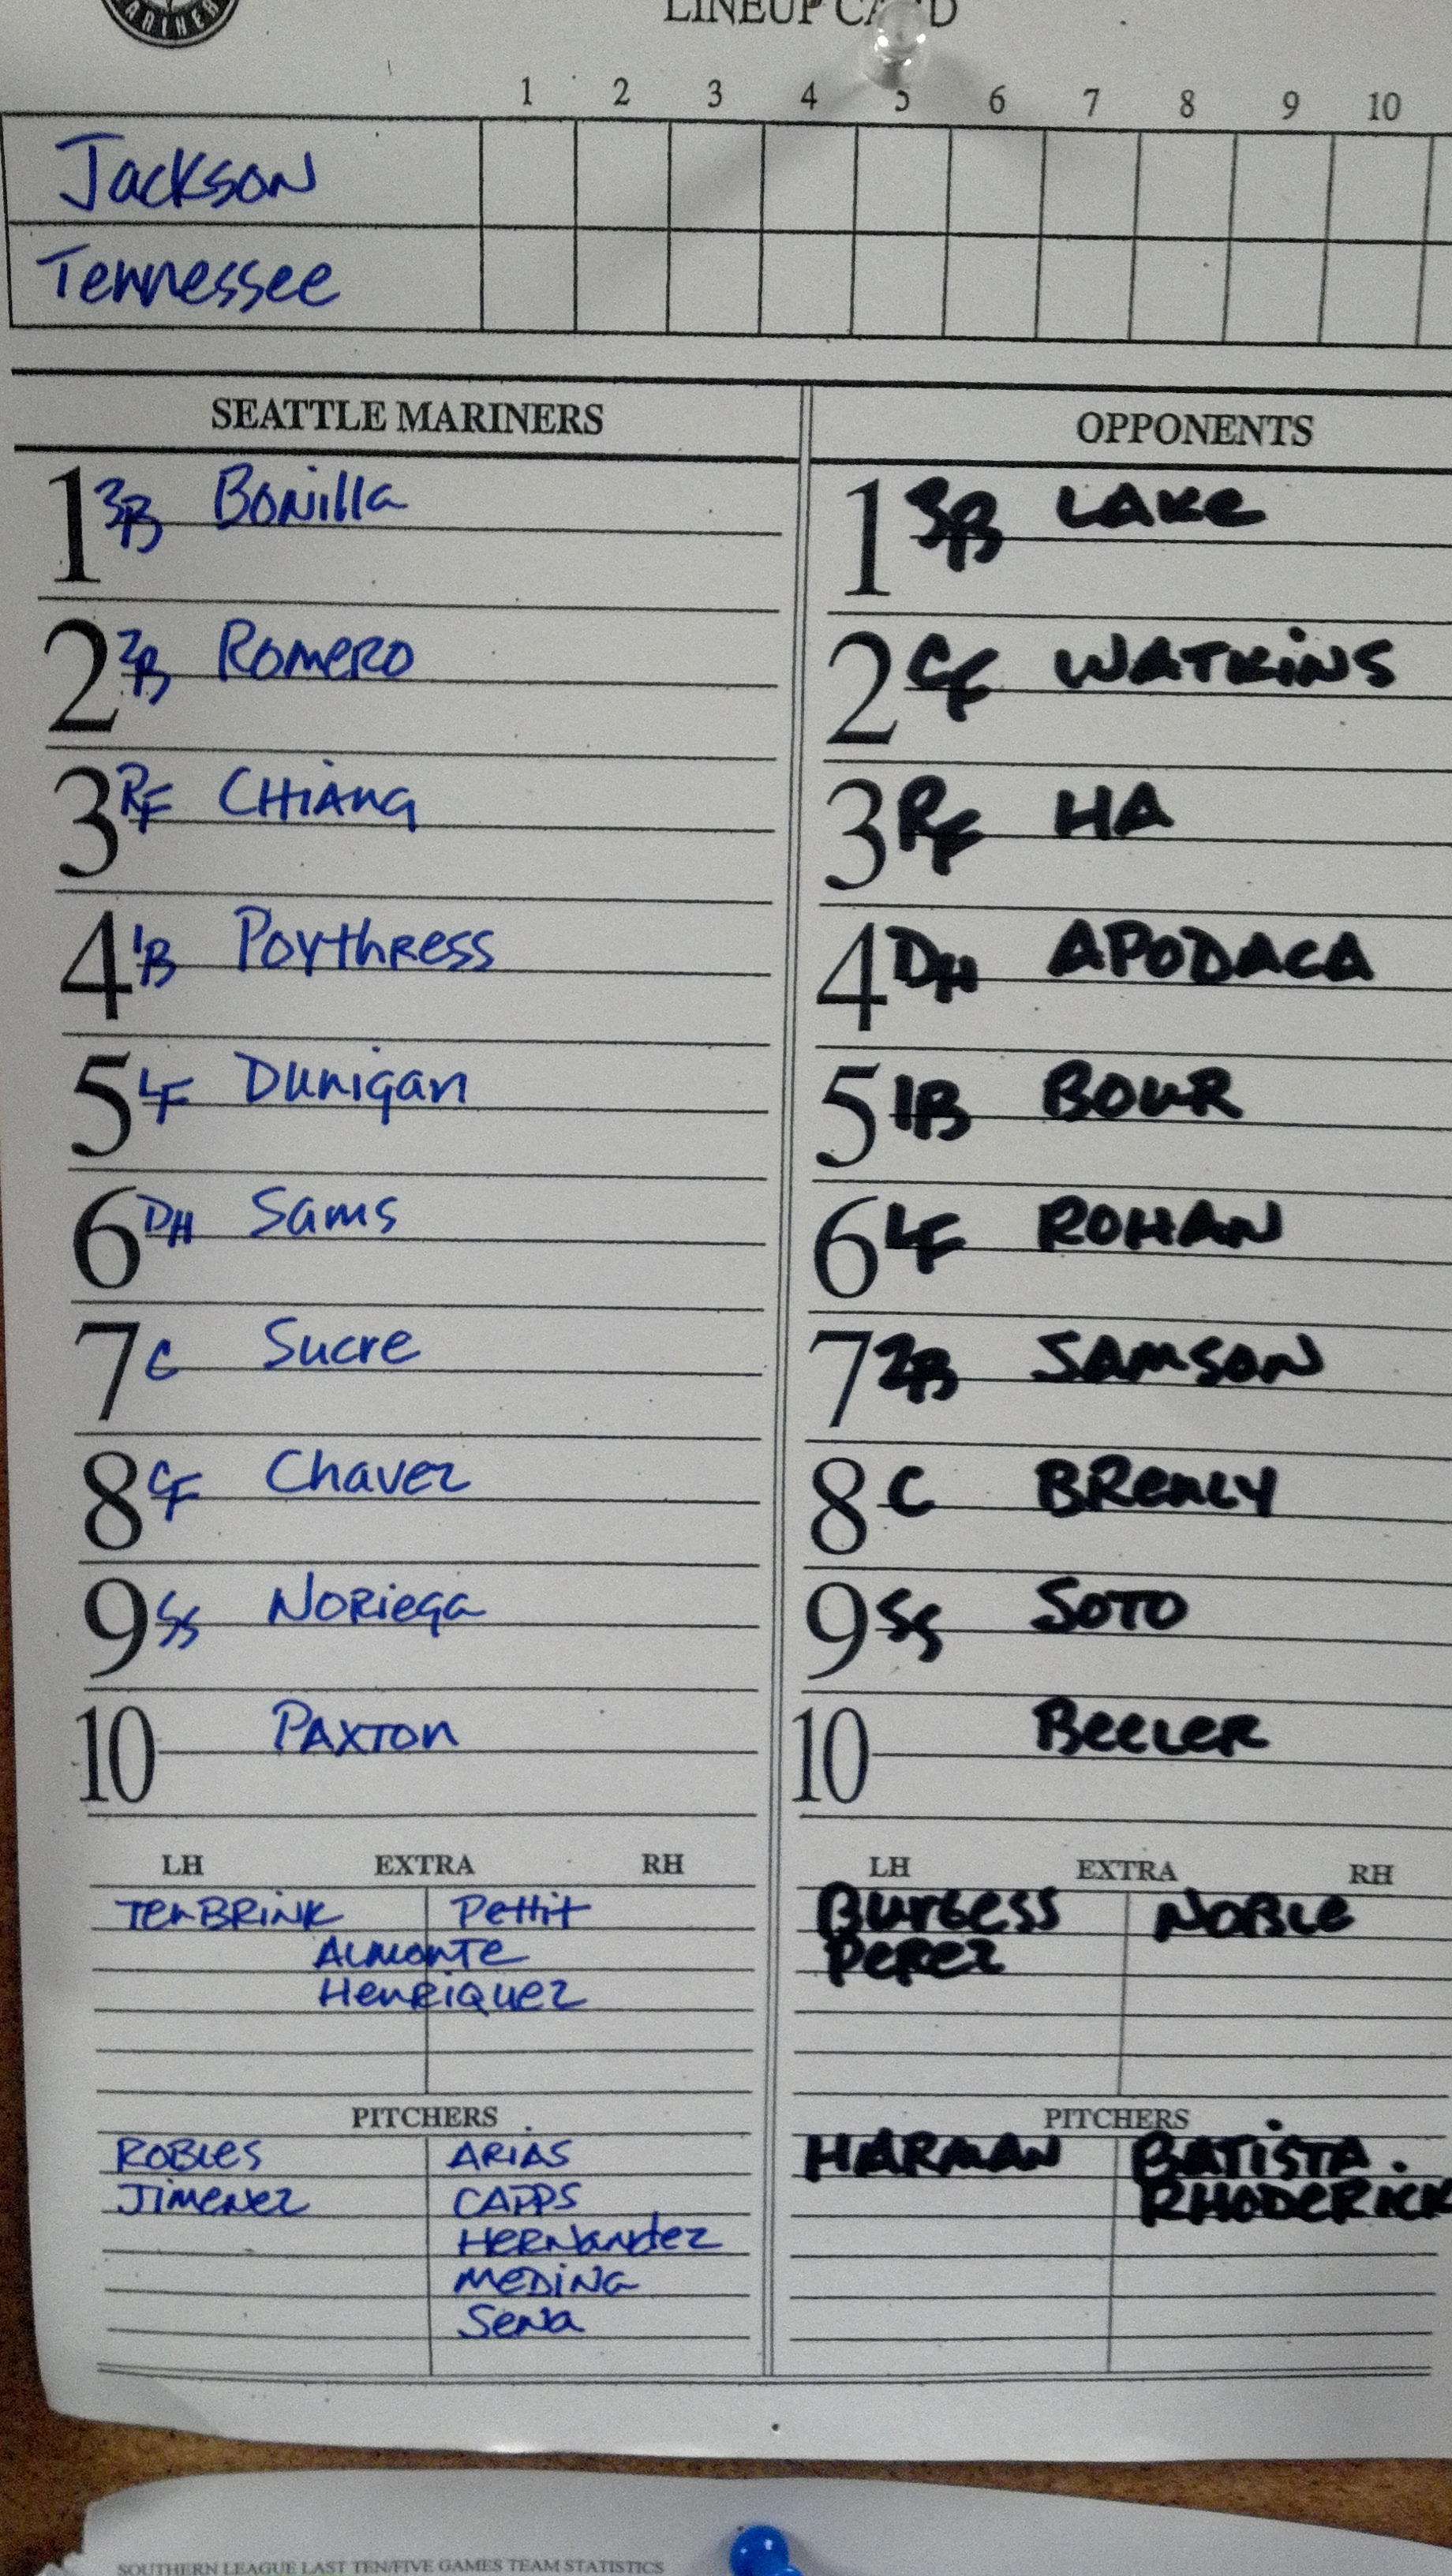 LINEUP CARD
1 2 3 4 5 6 7 8 9 10
Jackson
Tennessee
SEATTLE MARINERS
1 3B Bonilla
2 2B Romero
3 RF CHiANG
4 1B Poythress
5 LF Dunigan
6 DH Sams
7 C Sucre
8 CF Chavez
9 SS Noriega
10 PAXTON
LH EXTRA RH
TENBRINK Pettit
ALMONTE
HenRiquez
PITCHERS
ROBLES ARIAS
JIMENEZ CAPPS
HERNandez
MEDINA
SeNa
OPPONENTS
1 3B LAKE
2 CF WATKINS
3 RF HA
4 DH APODACA
5 1B BOUR
6 LF ROHAN
7 2B SAMSON
8 C BRENLY
9 SS SOTO
10 BEELER
LH EXTRA RH
BURGESS NOBLE
PEREZ
PITCHERS
HARMAN BATISTA
RHODERICK
SOUTHERN LEAGUE LAST TEN/FIVE GAMES TEAM STATISTICS